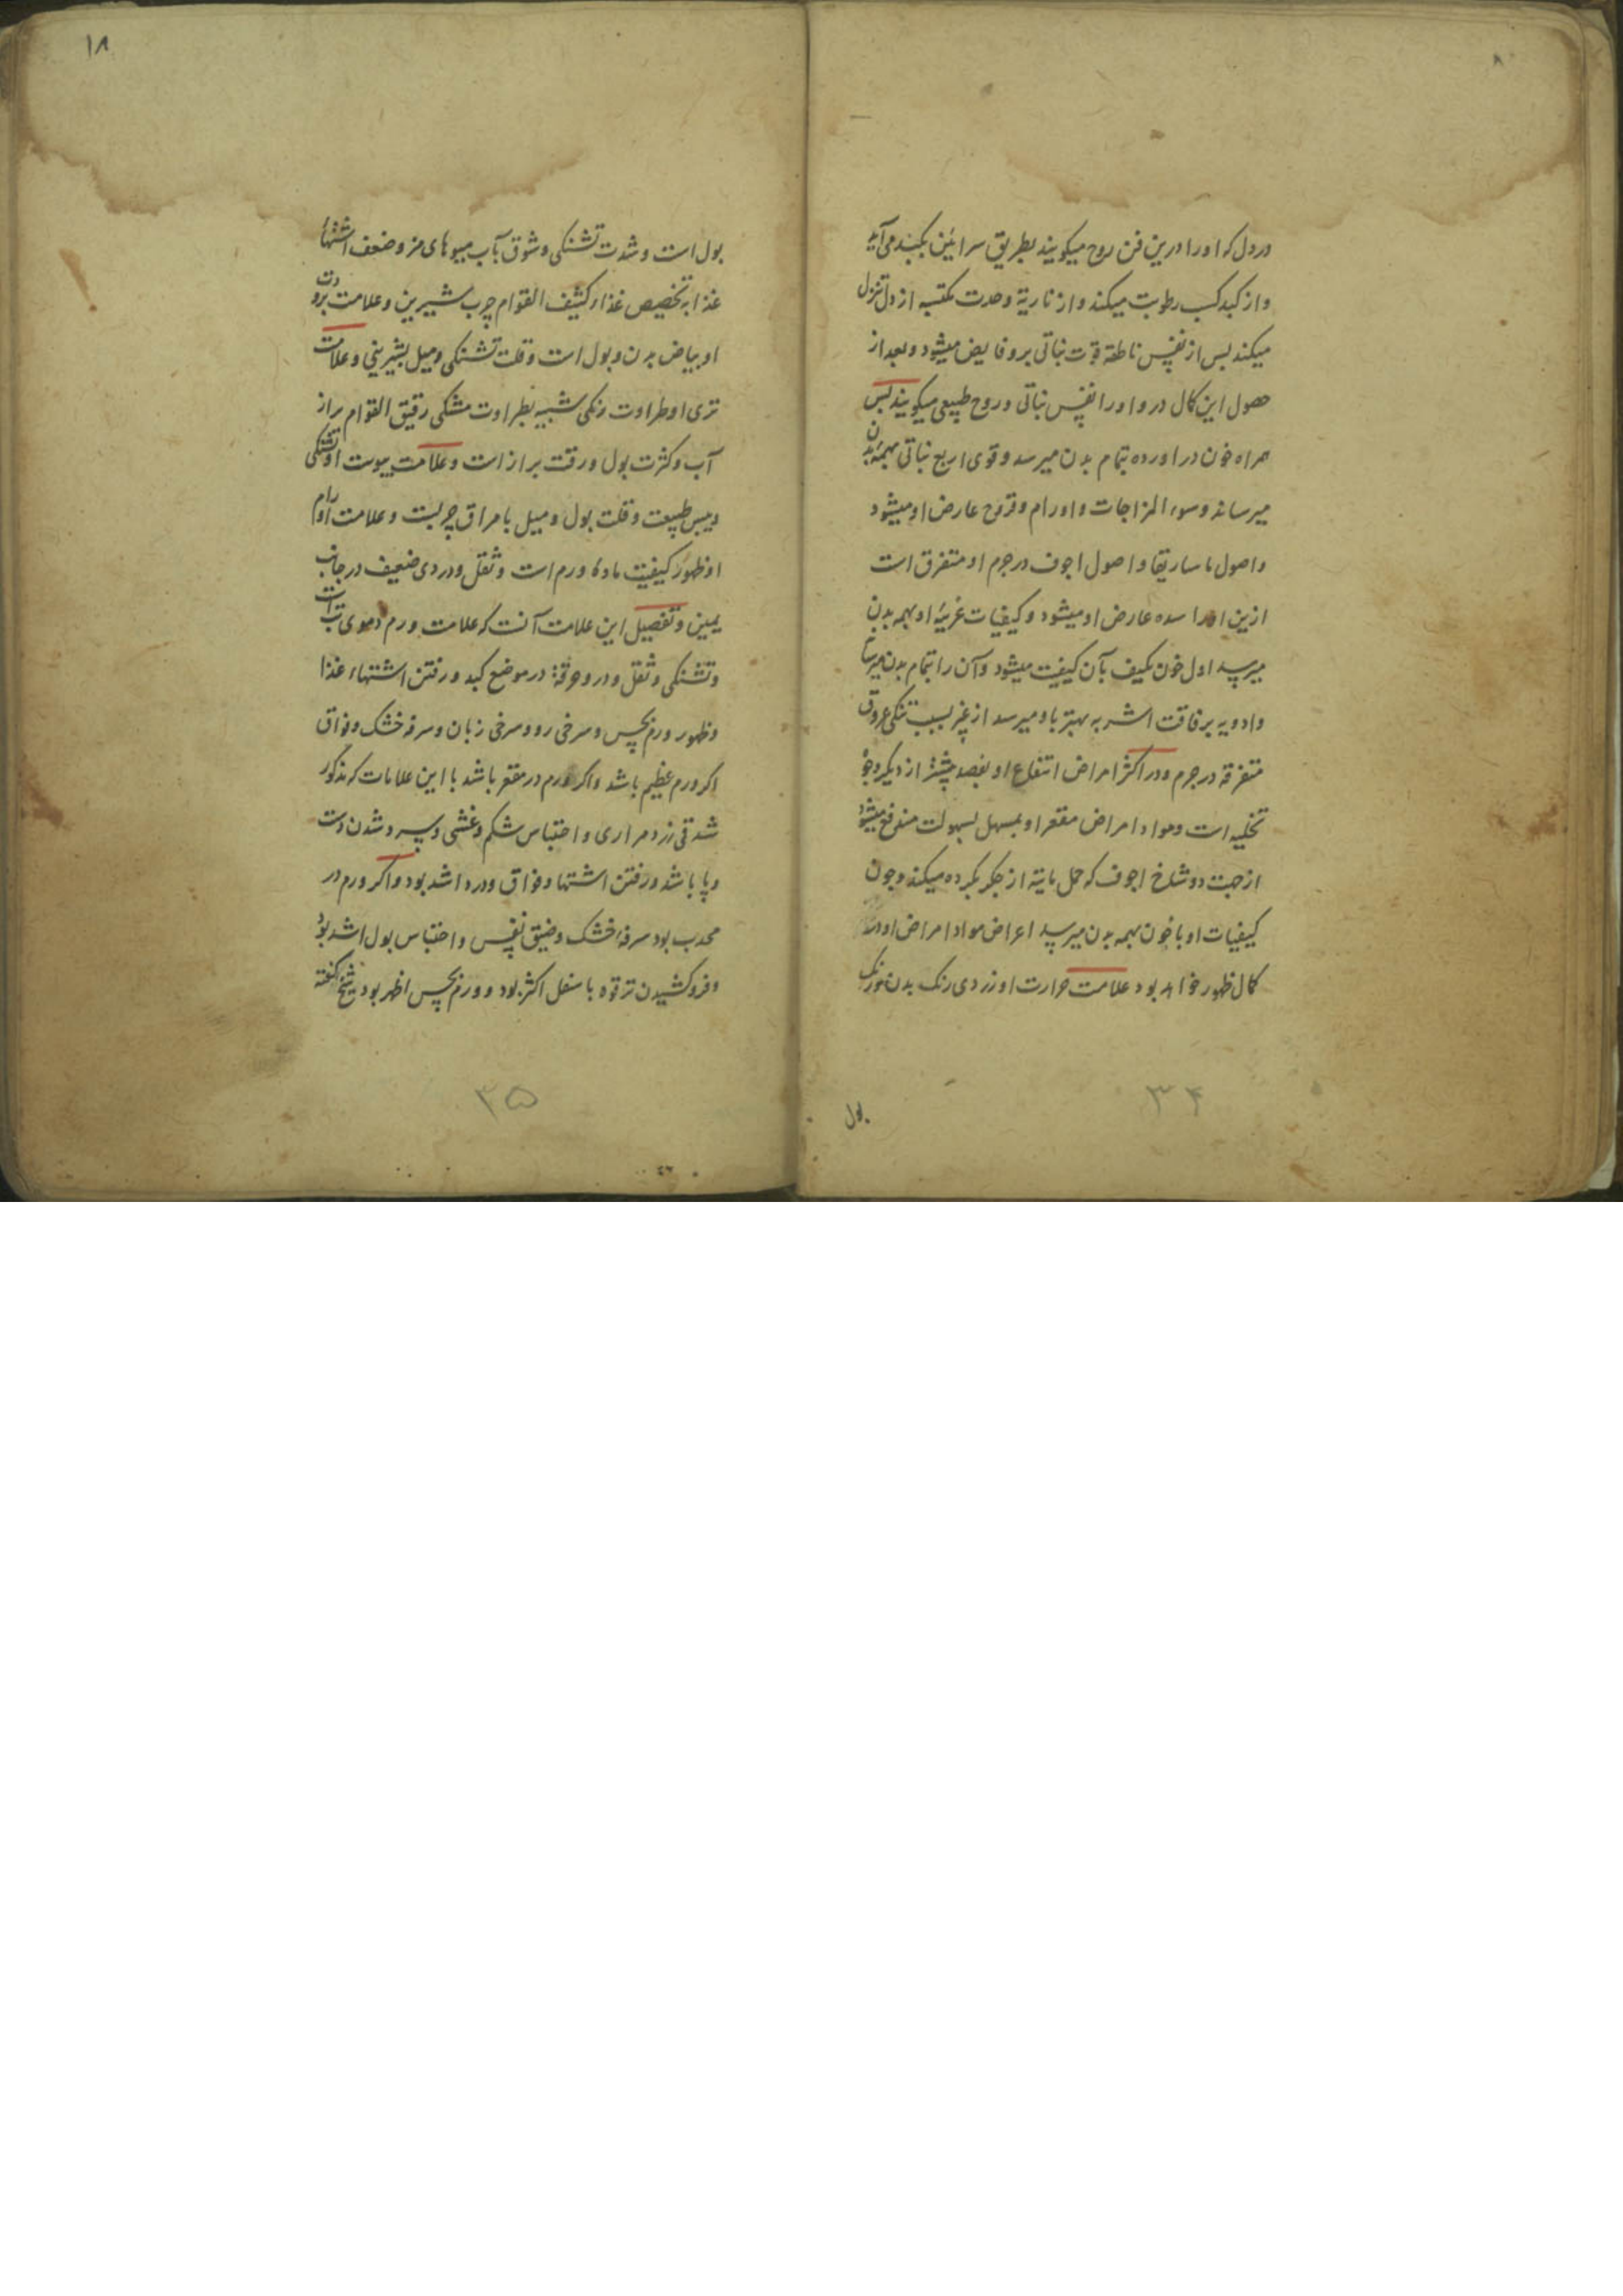 در دل که او را درین فن روح میکویند بطریق شرائین بکبد می آید
واز کبد کسب رطوبت میکند واز ناریة وحدت مکتسبه از دل تنزل
میکند پس از نفس ناطقه قوت نباتی برو فایض میشود وبعد از
حصول این کمال در و او را نفس نباتی وروح طبیعی میکویند پس
همراه خون در اورده بتمام بدن میرسد وقوی اربع نباتی بهمه بدن
میرساند وسوء المزاجات واورام وقروح عارض او میشود
واصول ماساریقا واصول اجوف در جرم او متفرق است
ازین او را سده عارض او میشود وکیفیات غریبه او بهمه بدن
میرسد اول خون مکیف بآن کیفیت میشود وآن را بتمام بدن میرساند
وادویه برفاقت اشربه بهتر باو میرسد از غیر بسبب تنکی عروق
متفرقه در جرم ودر اکثر امراض انتفاع او بفصد بیشتر از دیکر وجوه
تخلیه است ومواد امراض مقعر او بمسهل بسهولت مندفع میشود
از جهت دو شاخ اجوف که حمل مایة از جکر بکرده میکند وچون
کیفیات او با خون بهمه بدن میرسد اعراض مواد امراض او در
کمال ظهور خواهد بود علامت حرارت او زردی رنک بدن ورنک
بول
۳۴
۱۸
بول است وشدت تشنکی وشوق بآب میوهای مز وضعف اشتها
غذا بتخصیص غذاء کثیف القوام چرب شیرین وعلامت برودت
او بیاض بدن وبول است وقلت تشنکی ومیل بشیرینی وعلامت
تری او طراوت رنکی شبیه بطراوت مشکی رقیق القوام پر از
آب وکثرت بول ورقت براز است وعلامت یبوست او تشنکی
ویبس طبیعت وقلت بول ومیل بامراق چربست وعلامت اورام
او ظهور کیفیت ماده ورم است وثقل ودردی ضعیف در جانب
یمین وتفصیل این علامت آنست که علامت ورم دموی تب است
وتشنکی وثقل ودرد وحرقة در موضع کبد ورفتن اشتهاء غذا
وظهور ورم بحس وسرخی رو وسرخی زبان وسرفه خشک وفواق
اکر ورم عظیم باشد واکر ورم در مقعر باشد با این علامات که مذکور
شد قی زرد مراری واحتباس شکم وغشی وسرد شدن دست
وپا باشد ورفتن اشتها وفواق ودرد اشد بود واکر ورم در
محدب بود سرفه خشک وضیق نفس واحتباس بول اشد بود
وفرو کشیدن ترقوه باسفل اکثر بود وورم بحس اظهر بود شیخ کفته
۳۵